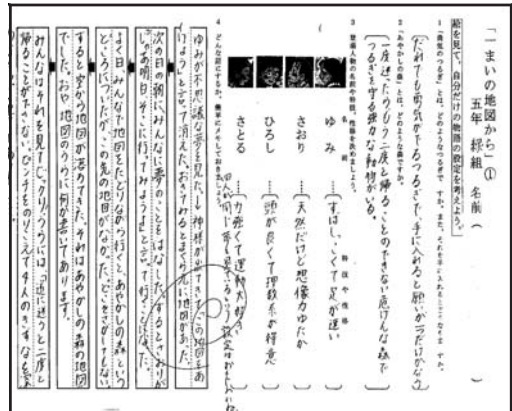 「一まいの地図から」①
五年 緑組 名前（　　　）
絵を見て、自分だけの物語の設定を考えよう。
1「勇気のつるぎ」とは、どのようなつるぎで
だれでも勇気がでるつるぎで、手に入れると願いが一つだけかなう
2「あやかしの森」とは、どのような森ですか。
一度迷ったらもう二度と帰ることのできない危けんな森で
つるぎを守る強力な動物がいる。
3 登場人物の名前や特徴、性格を決めましょう。
名前 特徴や性格
ゆみ …… すばしっこくて足が速い
さおり …… 天然だけど想像力ゆたか
ひろし …… 頭が良くて理数系が得意
さとる …… 力強くて運動大好き
4 どんな話にするか、簡単にメモしておきましょう。
ゆみが不思議な夢を見た。神様が出てきて「この地図をあ
げよう」と言って消えた。おきてみるとまくら元に地図があった。
次の日の朝にみんなに夢のことをはなした。するとさおりが
「じゃあ明日そこに行ってみようよ」と言って行くことになった。
よく日みんなで地図をたどりながら行くと、あやかしの森という
ところについたが、この先の地図がなかった。どこをさがしてもない
すると空から地図が落ちてきた。それはあやかしの森の地図
でした。おや、地図のうらに何か書いてあります。
みんなはそれを見てびっくり。うらには「道に迷うと二度と
帰ることができない。ピンチをのりこえて4人のきずなを深